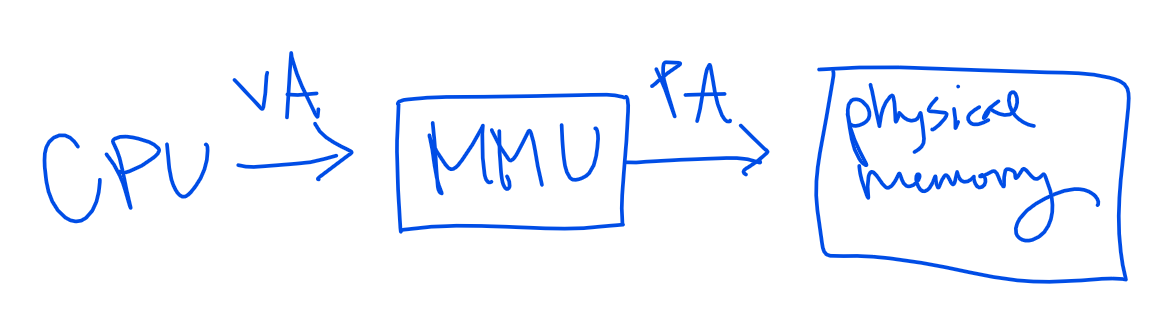 CPU
VA
MMU
PA
physical
memory